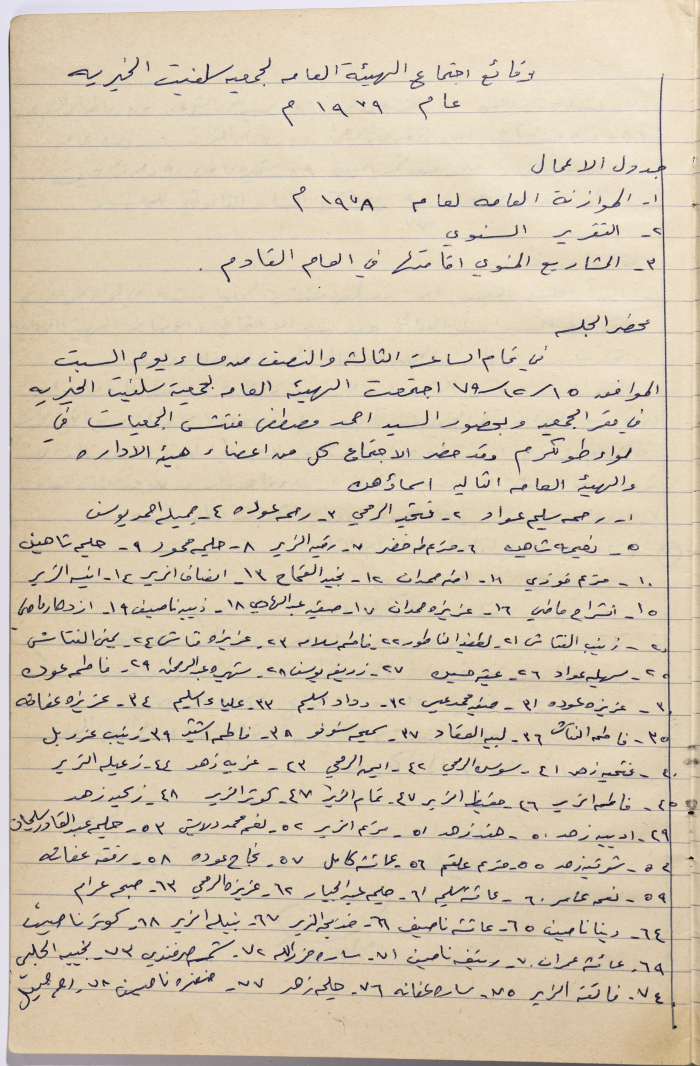 وقائع اجتماع الهيئة العامه لجمعيه سلفيت الخيريه
عام ١٩٧٩ م
جدول الاعمال
١- الموازنة العامه لعام ١٩٧٨ م
٢- التقرير السنوي
٣- المشاريع المنوي اقامتها في العام القادم .
محضر الجلسه
في تمام الساعة الثالثة والنصف من مساء يوم السبت
الموافق ١٥/١٢/٧٩ اجتمعت الهيئه العامه لجمعية سلفيت الخيريه
في مقر الجمعيه وبحضور السيد احمد مصطفى مفتش الجمعيات في
لواء طولكرم وقد حضر الاجتماع كل من اعضاء هيئة الاداره
والهيئه العامه التاليه اسماؤهن
١- رحمه سليم عواد ٢- فتحيه الرمحي ٣- رحمه عوده ٤- جميله احمد يوسف
٥- نعيمه شاهين ٦- مريم خضر ٧- رقيه الزير ٨- حليمه محمود ٩- حليمه شاهين
١٠- مريم فوزي ١١- امنه حمدان ١٢- نجيه القماح ١٣- انصاف الزير ١٤- انيسه الزير
١٥- انشراح ماضي ١٦- عزيزه حمدان ١٧- صفيه عبد الهادي ١٨- زينب ناصيف ١٩- ازدهار ماضي
٢٠- زينب الفتاش ٢١- لطفيه الناطور ٢٢- فاطمه سلامه ٢٣- عزيزه فتاش ٢٤- يمنى الفتاش
٢٥- سهيله عواد ٢٦- ٢٧- يوسف ٢٨- عبد الرحمن ٢٩- فاطمه عوده
٣٠- عزيزه عوده ٣١- صفيه محمد عيسى ٣٢- وداد اسليم ٣٣- علياء اسليم ٣٤- عزيزه عفانه
٣٥- فاطمه الفتاش ٣٦- لبيبه العقاد ٣٧- سميحه ٣٨- فاطمه اشتيه ٣٩- زينب
٤٠- فتحيه زهد ٤١- سوسن الرمحي ٤٢- ايمن الرمحي ٤٣- عزيه زهد ٤٤- الزير
٤٥- فاطمه الزير ٤٦- حفيظه الزير ٤٧- تمام الزير ٤٧- كوثر الزير ٤٨- زكيه زهد
٤٩- اديبه زهد ٥٠- هند زهد ٥١- مريم الزير ٥٢- نعمه محمد ٥٣- حليمه عبد القادر سليمان
٥٤- شرقيه زهد ٥٥- مريم علقم ٥٦- عائشه كامل ٥٧- نجاح عوده ٥٨- رفقه عفانه
٥٩- نعمه عامر ٦٠- عائشه سليم ٦١- حليمه عبد الجبار ٦٢- عزيزه الرمحي ٦٣- صبحه عرام
٦٤- دينا ناصيف ٦٥- عائشه ناصيف ٦٦- خديجه الزير ٦٧- نبيله الزير ٦٨- كوثر ناصيف
٦٩- عائشه عمران ٧٠- ناصيف ٧١- ساره ٧٢- ٧٣- نجيبه الحلبي
٧٤- فائقه الزير ٧٥- ساره عفانه ٧٦- حليمه زهد ٧٧- خضره ناصيف ٧٨-